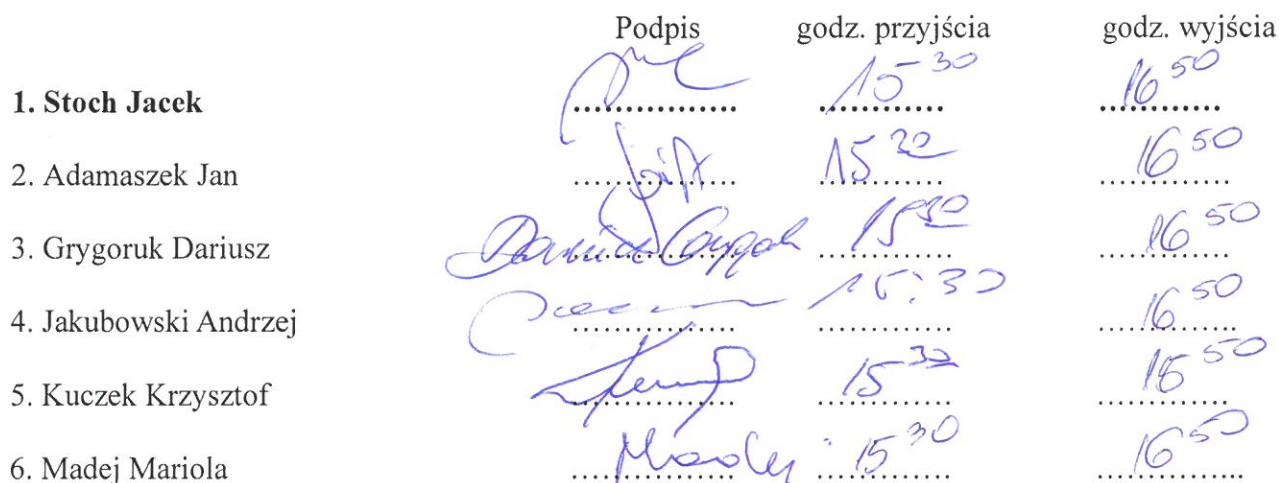 Podpis godz. przyjścia godz. wyjścia
1. Stoch Jacek .............. 15 30 16 50
2. Adamaszek Jan .............. 15 30 16 50
3. Grygoruk Dariusz .............. 15 30 16 50
4. Jakubowski Andrzej .............. 15:30 16 50
5. Kuczek Krzysztof .............. 15 30 16 50
6. Madej Mariola Madej 15 30 16 50